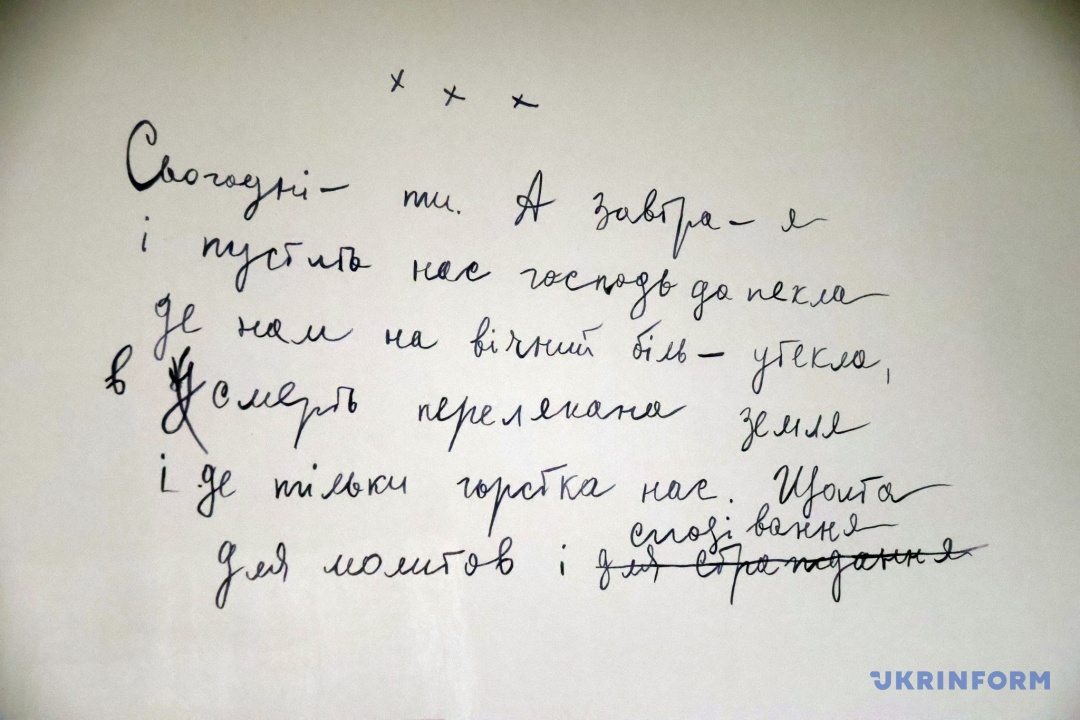 × × ×
Сьогодні – ти. А завтра – я
і пустить нас господь до пекла
де нам на вічний біль – утекла,
в смерть перелякана земля
і де тільки горстка нас. Щопта
сподівання
для молитов і для страждання
UKRINFORM